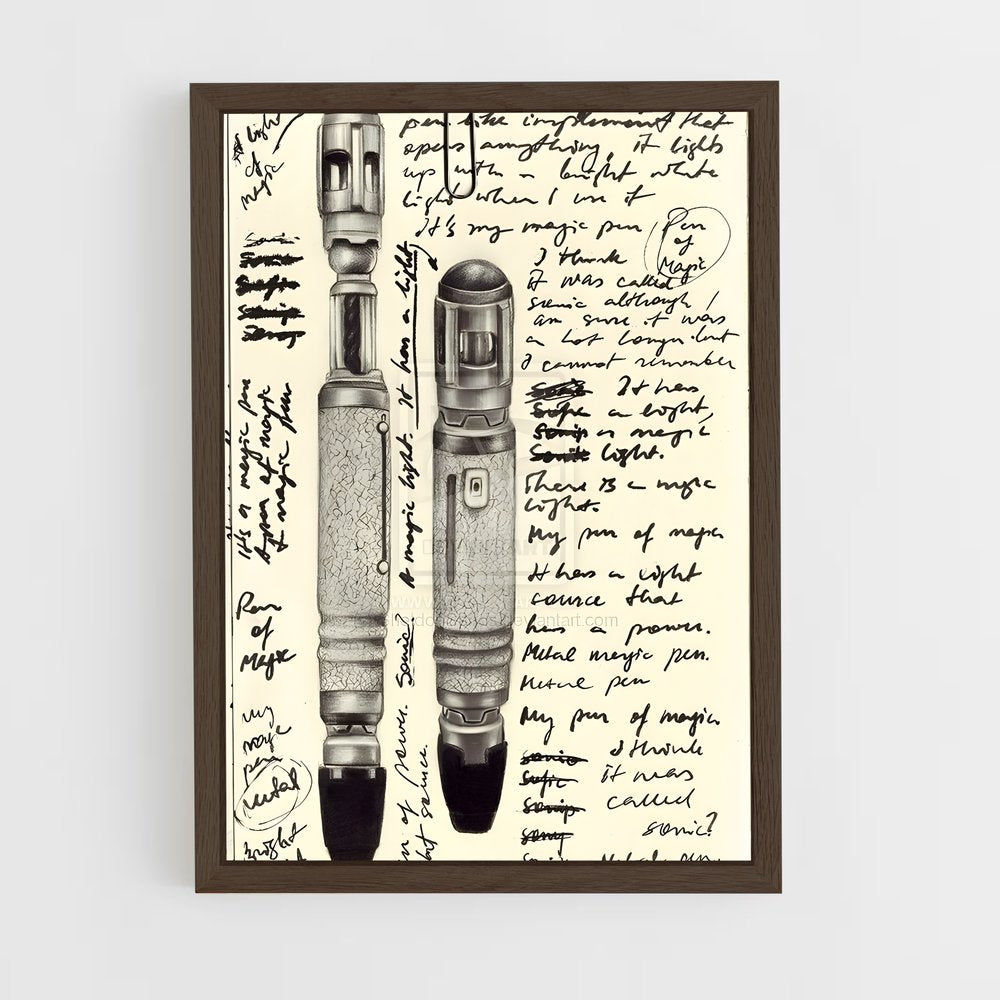 pen like implement that
opens anything, it lights
up with a bright white
light when I use it
It's my magic pen
Pen
of
Magic
I think
it was called
sonic although I
am sure it was
a lot longer but
I cannot remember
It has
a light,
a magic
light.
There is a magic
light.
My pen of magic
It has a light
source that
has a power.
Metal magic pen.
Metal pen
My pen of magic
I think
it was
called
sonic?
sonic
Metal pen
light
of
magic
It's a magic pen
A pen of magic
A magic pen
Pen
of
Magic
my
magic
pen
metal
A magic light. It has a light
of power. Sonic?
DEVIANTART
deviantart.com